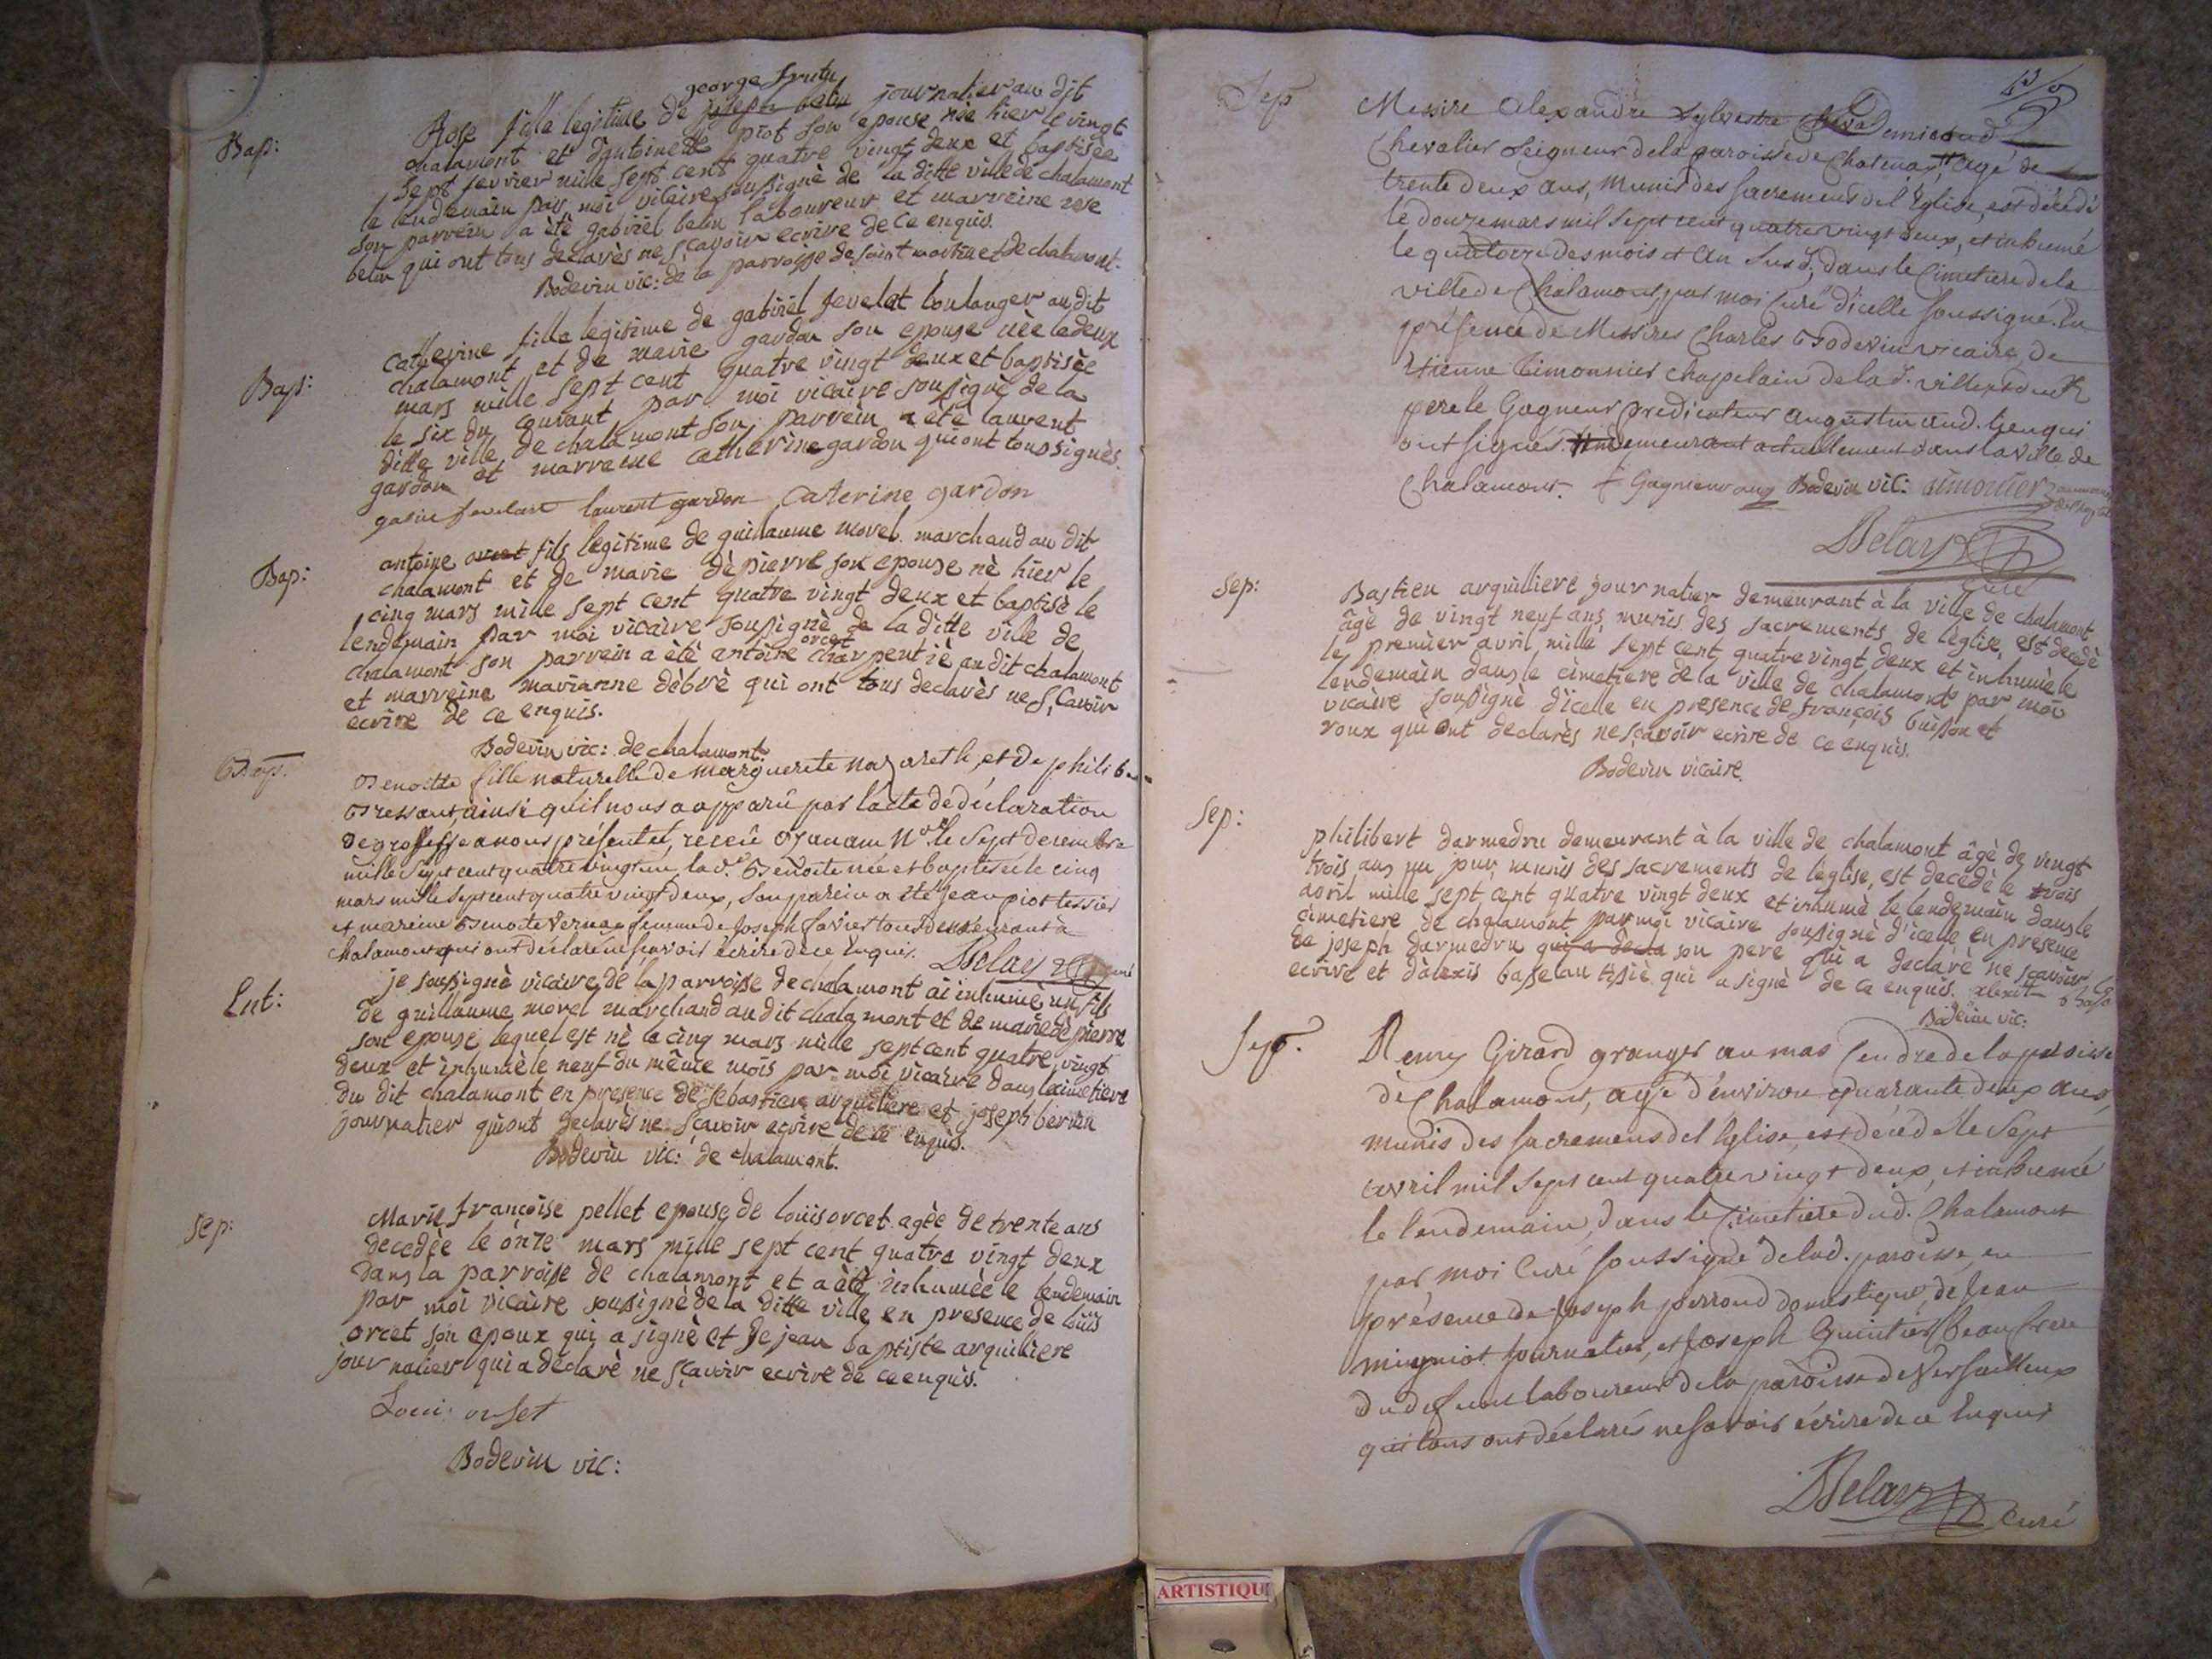 Bap:
george frutu
Rose fille legitime de joseph belin journalier au dit
chalamont et d'antoinette piot son epouse née hier le vingt
sept fevrier mille sept cent quatre vingt deux et baptisée
le lendemain par moi vicaire soussignè de la ditte ville de chalamont
son parrein a ètè gabriel belin laboureur et marreine rose
belin qui ont tous declarès ne sçavoir ecrire de ce enquis.
Bodevin vic: de la parroisse de saint martin et de chalamont.
Bap:
Catherine fille legitime de gabriel fevelat boulanger au dit
chalamont et de marie gardon son epouse nèe le deux
mars mille sept cent quatre vingt deux et baptisèe
le six du courant par moi vicaire soussignè de la
ditte ville de chalamont son parrein a ètè laurent
gardon et marreine catherine gardon qui ont tous signès.
laurent gardon Caterine gardon
Bap:
antoine fils legitime de guillaume morel marchand au dit
chalamont et de marie dèpierre son epouse nè hier le
cinq mars mille sept cent quatre vingt deux et baptisè le
lendemain par moi vicaire soussignè de la ditte ville de
orcet
chalamont son parrein a ètè antoine charpentiè au dit chalamont
et marreine marianne dèbrè qui ont tous declarès ne sçavoir
ecrire de ce enquis.
Bodevin vic: de chalamont.
Bap.
Benoitte fille naturelle de marguerite nazareth, et de philib
Bressant, ainsi qu'il nous a apparû par l'acte de déclaration
de grossesse a nous présentée, receû Ozanam Nre le Sept decembre
mille Sept cent quatre vingt un lad. Benoite née et baptisée le cinq
mars mille Sept cent quatre vingt deux, Son parein a été Jean piot tessier
et mareine Benoite Vernay femme de Joseph favier tous demeurant à
Chalamont qui ont déclaré ne savoir écrire de ce Enquis. Delay curé
Ent:
je soussignè vicaire de la parroisse de chalamont ai inhumè un fils
de guillaume morel marchand au dit chalamont et de marie dèpierre
son epouse lequel est nè le cinq mars mille sept cent quatre vingt
deux et inhumè le neuf du même mois par moi vicaire dans le cimetiere
du dit chalamont en presence de sebastien arquiliere et joseph
journalier qui ont declarès ne sçavoir ecrire de ce enquis.
Bodevin vic: de chalamont.
Sep:
Marie françoise pellet epouse de louis orcet agèe de trente ans
decedèe le onze mars mille sept cent quatre vingt deux
dans la parroisse de chalamont et a ètè inhumèe le lendemain
par moi vicaire soussignè de la ditte ville en presence de louis
orcet son epoux qui a signè et de jean baptiste arquiliere
journalier qui a dèclarè ne sçavoir ecrire de ce enquis.
Loui orset
Bodevin vic:
Sep
Messire Alexandre Sylvestre Damicoud
Chevalier Seigneur de la paroisse de Chatenay, Agé de
trente deux ans, Munis des sacremens de l'Eglise, est décédé
le douze mars mil Sept cent quatre vingt deux, et inhumé
le quatorze des mois et An Susd. dans le Cimetiere de la
ville de Chalamont, par moi Curé d'icelle soussigné. En
présence de Messires Charles Bodevin vicaire, de
Etienne Timonnier chapelain de la d. ville, et du R.
pere le Gagneur prédicateur Augustin aud. lieu qui
ont signés. demeurant actuellement dans la ville de
Chalamont. f Gagnieur aug Bodevin vic: timonier
Delay
Curé
Sep:
Bastien arquilliere journalier demeurant à la ville de chalamont
âgè de vingt neuf ans munis des sacrements de lèglise, est decedè
le premier avril mille sept cent quatre vingt deux et inhumè le
lendemain dans le cimetiere de la ville de chalamont par moi
vicaire soussignè d'icelle en presence de françois buisson et
roux qui ont declarès ne sçavoir ecrire de ce enquis.
Bodevin vicaire.
Sep:
philibert darmedru demeurant à la ville de chalamont âgè de vingt
trois ans un jour, munis des sacrements de lèglise, est decedè le trois
avril mille sept cent quatre vingt deux et inhumè le lendemain dans le
cimetiere de chalamont par moi vicaire soussignè d'icelle, en presence
de joseph darmedru qui a decla son pere qui a declarè ne sçavoir
ecrire et d'alexis basselau tissiè qui a signè de ce enquis. alexit
Bodevin vic:
Sep.
Remy Girard granger au mas Cendre de la paroisse
de Chalamont, agé d'environ quarante deux ans,
munis des sacremens de l'Eglise, est décédé le Sept
avril mil sept cent quatre vingt deux, et inhumé
le lendemain, dans le Cimetiere dud. Chalamont
par moi Curé soussigné de lad. paroisse, en
présence de Joseph perroud domestique, de Jean
migniot journalier, et Joseph Guintier beau frere
du defunt laboureur de la paroisse de Versailleux
qui tous ont déclarés ne savoir écrire de ce Enquis
Delay curé
ARTISTIQU